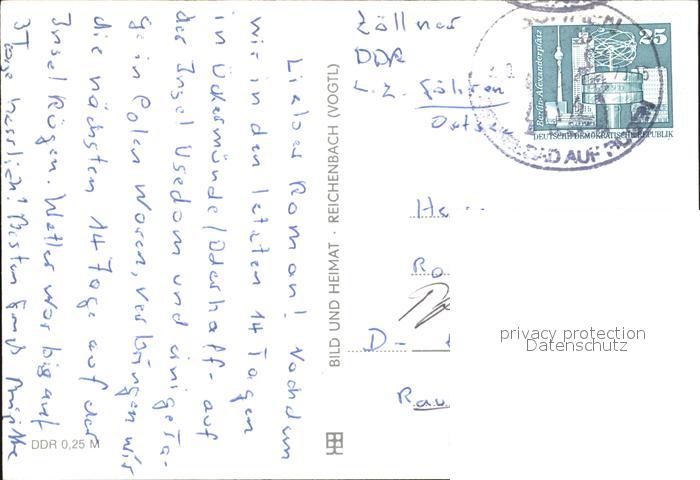 Zöllner
DDR
z. Z. Göhren
Ostsee
25
Berlin-Alexanderplatz
DEUTSCHE DEMOKRATISCHE REPUBLIK
BAD AUF RÜGEN
Lieber Roman! Nachdem
wir in den letzten 14 Tagen
in Ückermünde/Oderhaff - auf
der Insel Usedom und einige Ta-
ge in Polen waren, verbringen wir
die nächsten 14 Tage auf der
Insel Rügen. Wetter war bis auf
3 Tage hässlich! Besten Gruß Brigitte
BILD UND HEIMAT · REICHENBACH (VOGTL)
He
Ro
D-
Rau
privacy protection
Datenschutz
DDR 0,25 M